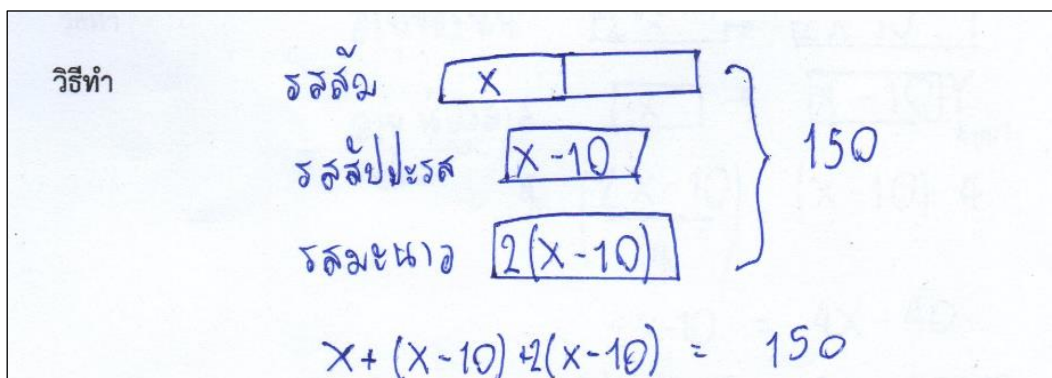 วิธีทำ
รสส้ม x
รสสัปปะรส x-10
150
รสมะนาว 2(x-10)
x+(x-10)+2(x-10) = 150